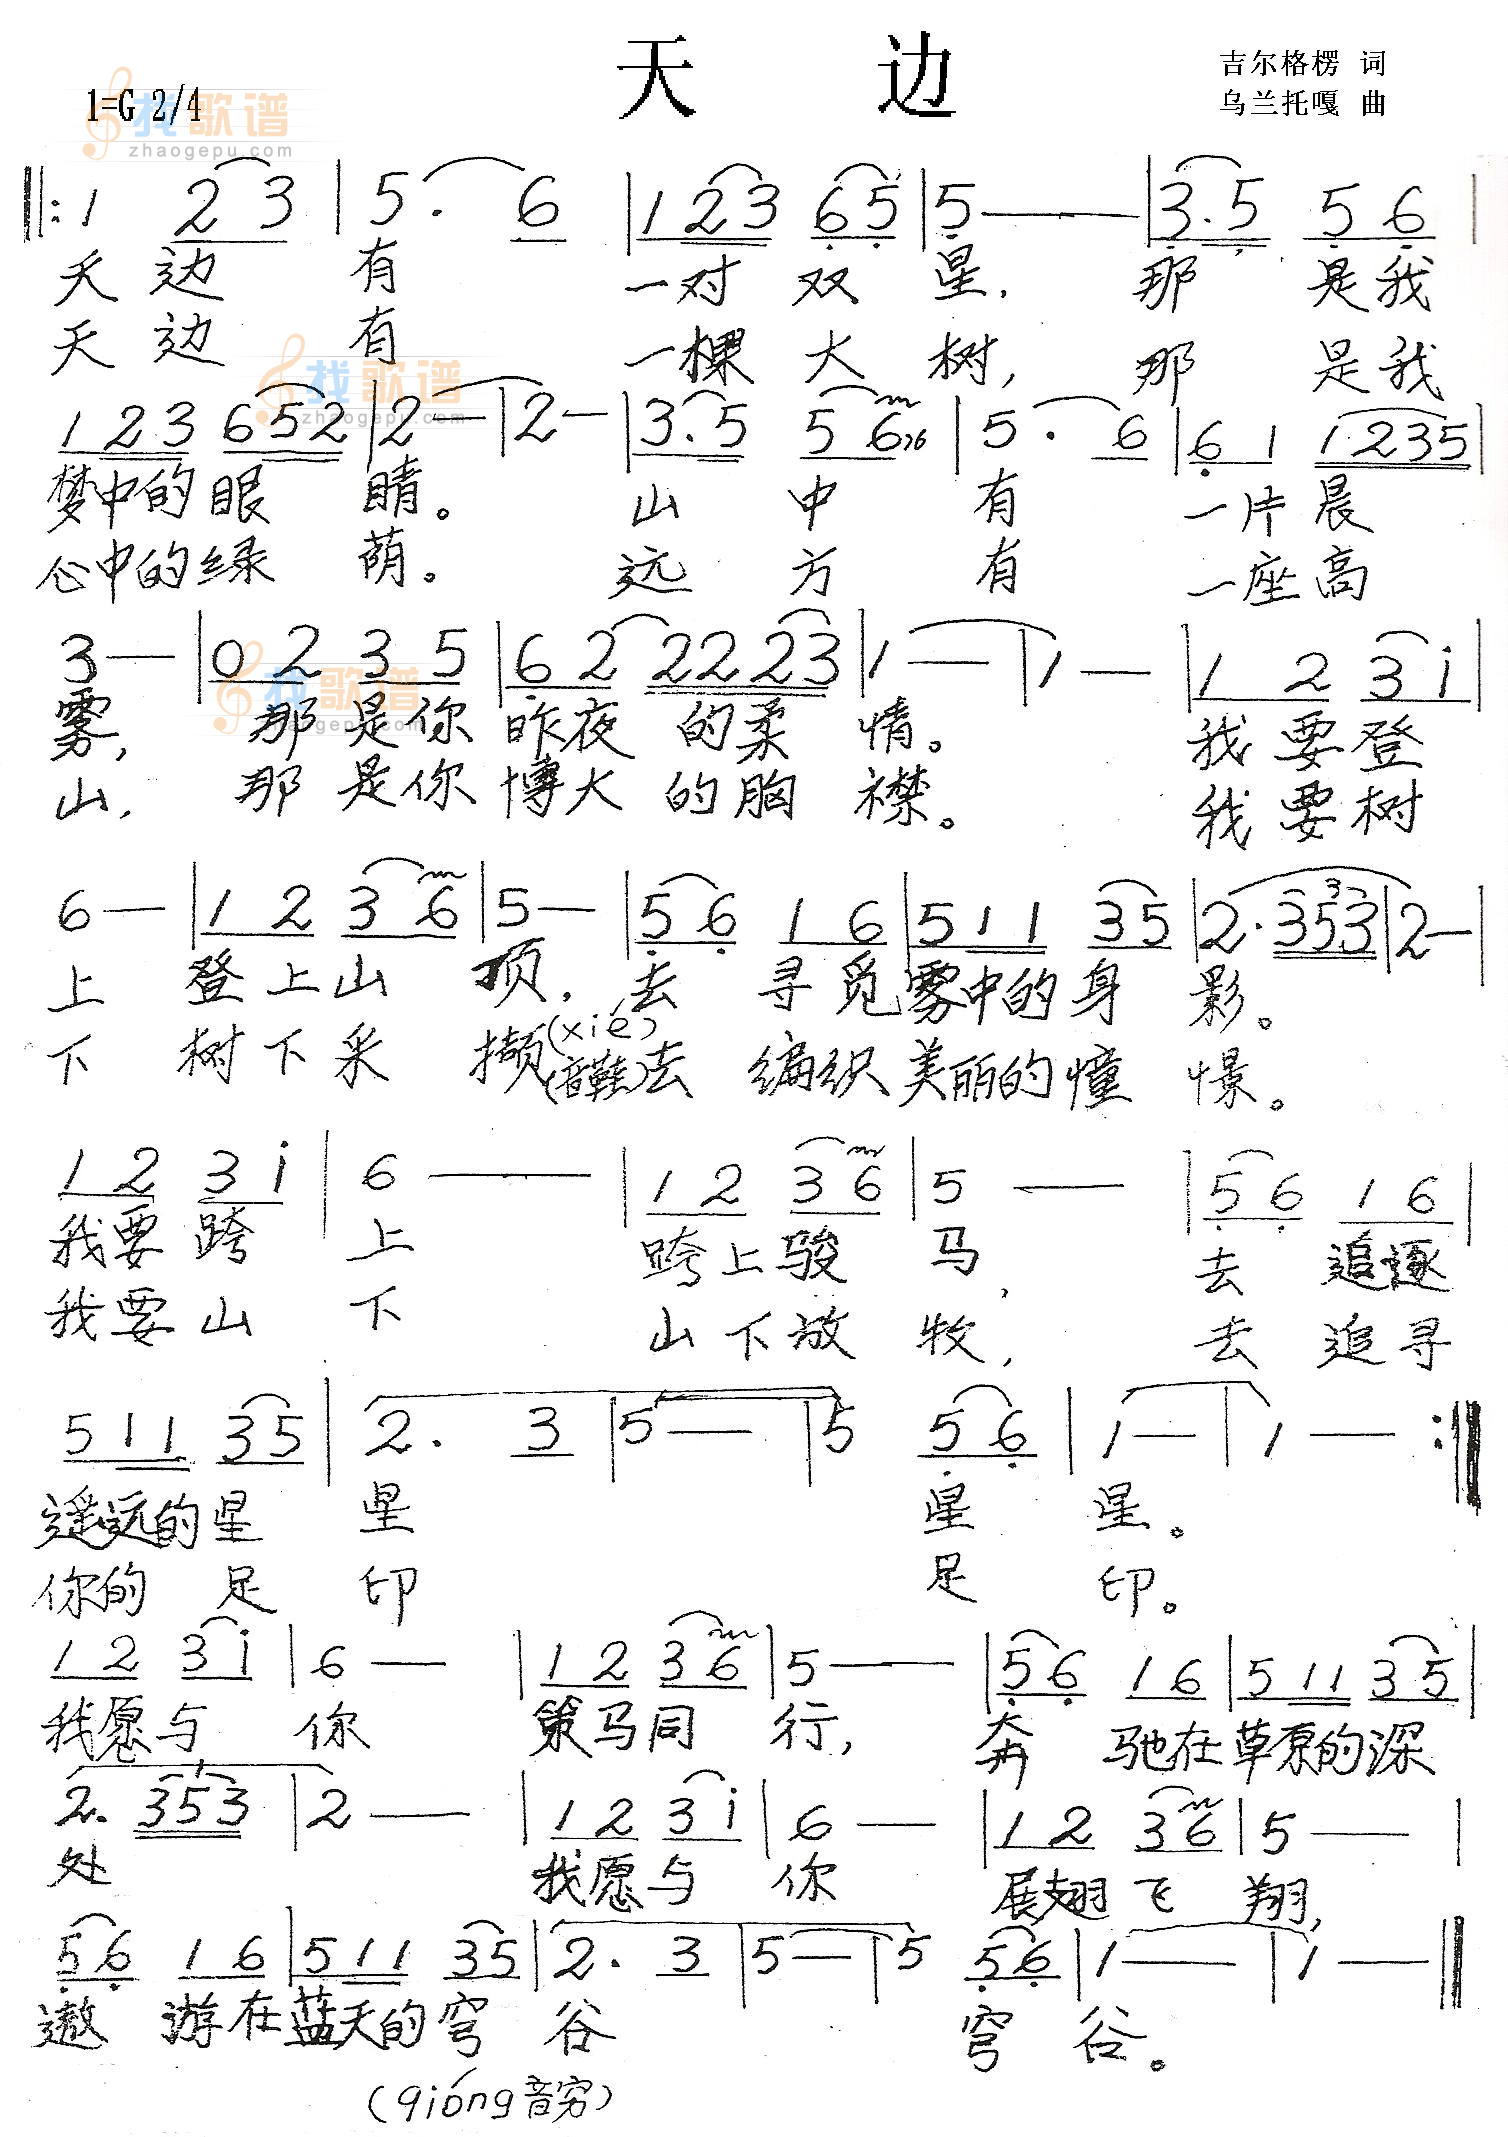 天 边
吉尔格楞 词
1=G 2/4
乌兰托嘎 曲
找歌谱
zhaogepu.com
‖: 1 2 3 | 5 . 6 | 1 2 3 6 5 | 5 — | 3 . 5 5 6 |
天 边 有 一对 双 星, 那 是我
天 边 有 一棵 大 树, 那 是我
找歌谱
zhaogepu.com
1 2 3 6 5 2 | 2 — | 2 — | 3 . 5 5 6 | 5 . 6 | 6 1 1 2 3 5 |
梦中的眼 睛。 山 中 有 一片晨
心中的绿 荫。 远 方 有 一座高
3 — | 0 2 3 5 | 6 2 2 2 2 3 | 1 — | 1 — | 1 2 3 i |
找歌谱
zhaogepu.com
雾, 那是你 昨夜 的柔 情。 我要登
山, 那是你 博大 的胸 襟。 我要树
6 — | 1 2 3 6 | 5 — | 5 6 1 6 | 5 1 1 3 5 | 2 . 3 5 3 | 2 — |
上 登上山 顶, 去 寻觅雾中的身 影。
下 树下采 撷(xié)(音鞋)去 编织美丽的憧 憬。
1 2 3 i | 6 — | 1 2 3 6 | 5 — | 5 6 1 6 |
我要跨 上 跨上骏 马, 去 追逐
我要山 下 山下放 牧, 去 追寻
5 1 1 3 5 | 2 . 3 | 5 — | 5 5 6 | 1 — | 1 — :‖
遥远的星 星 星 星。
你的 足 印 足 印。
1 2 3 i | 6 — | 1 2 3 6 | 5 — | 5 6 1 6 | 5 1 1 3 5 |
我愿与 你 策马同 行, 奔 驰在草原的深
2 . 3 5 3 | 2 — | 1 2 3 i | 6 — | 1 2 3 6 | 5 — |
处 我愿与 你 展翅飞 翔,
5 6 1 6 | 5 1 1 3 5 | 2 . 3 | 5 — | 5 5 6 | 1 — | 1 — ‖
遨 游在蓝天的穹 谷 穹 谷。
(qióng音穷)